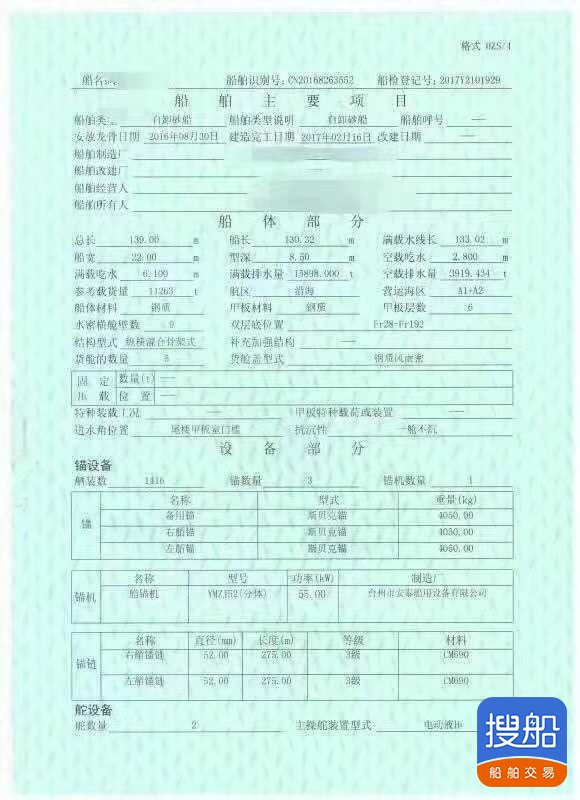 格式 HZS/4
船名 船舶识别号: CN20168263552 船检登记号: 2017Y2101929
船舶主要项目
船舶类型 自卸砂船 船舶类型说明 自卸砂船 船舶呼号 —
安放龙骨日期 2016年08月30日 建造完工日期 2017年02月16日 改建日期 —
船舶制造厂
船舶改建厂 —
船舶经营人
船舶所有人
船体部分
总长 139.00 m 船长 130.32 m 满载水线长 133.02 m
船宽 22.00 m 型深 8.50 m 空载吃水 2.800 m
满载吃水 6.100 m 满载排水量 15898.000 t 空载排水量 3919.434 t
参考载货量 11263 t 航区 沿海 营运海区 A1+A2
船体材料 钢质 甲板材料 钢质 甲板层数 6
水密横舱壁数 9 双层底位置 Fr28-Fr192
结构型式 纵横混合骨架式 补充加强结构 —
货舱的数量 5 货舱盖型式 钢质风雨密
固定 数量(t) —
压载 位置 —
特种装载工况 — 甲板特种载荷或装置 —
进水角位置 尾楼甲板室门槛 抗沉性 一舱不沉
设备部分
锚设备
舾装数 1416 锚数量 3 锚机数量 1
锚 名称 型式 重量(kg)
备用锚 斯贝克锚 4050.00
右船锚 斯贝克锚 4050.00
左船锚 斯贝克锚 4050.00
锚机 名称 型号 功率(kW) 制造厂
船锚机 55.00 台州市安泰船用设备有限公司
锚链 名称 直径(mm) 长度(m) 等级 材料
右船锚链 52.00 275.00 3级 CM690
左船锚链 52.00 275.00 3级 CM690
舵设备
舵数量 2 主操舵装置型式 电动液压
搜船
船舶交易